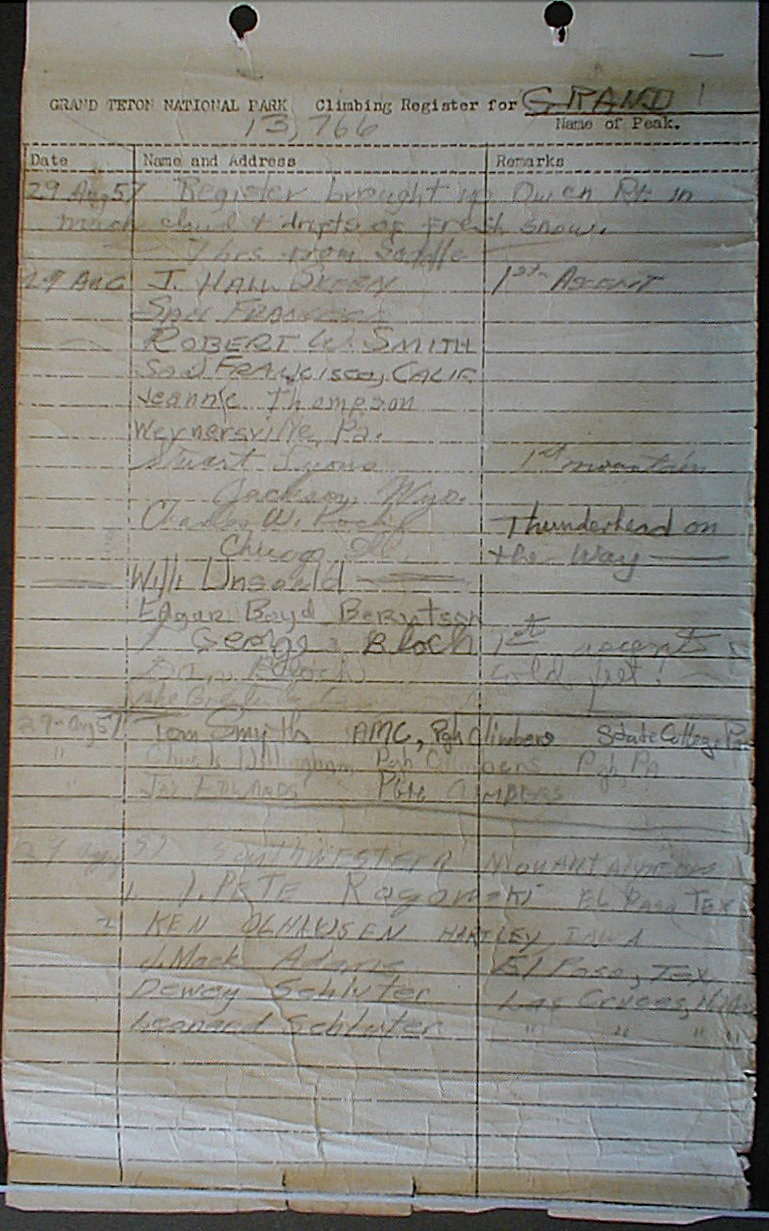 GRAND TETON NATIONAL PARK Climbing Register for GRAND
13,766 Name of Peak.
Date Name and Address Remarks
29 Aug 57 Register brought up Owen Rt. in
much cloud + drifts of fresh snow.
7 hrs from Saddle
29 AUG J. HALL 1st ASCENT
SAN FRANCISCO
ROBERT W. SMITH
SAN FRANCISCO, CALIF.
Jeannie Thompson
Weynersville, Pa.
Stuart Lyons 1st mountain
Jackson, Wyo.
Charles W. Thunderhead on
Chicago, Ill. the Way
Willi Unsoeld
Edgar Boyd Berntsen
George Bloch 1st ascent
Bloch cold feet!
29 Aug 57 Tom Smyth AMC, Pgh Climbers State College Pa
" Chuck Willingham Pgh Climbers Pgh, Pa
" EDWARDS PGH CLIMBERS
29 Aug 57 SOUTHWESTERN MOUNTAINEERS
1. J. PETE Rogowski EL PASO TEX
2 KEN OLHAUSEN HARTLEY, IOWA
J. Mack Adams El Paso, Tex
Dewey Schluter Las Cruces, N.
Leonard Schluter " " " "